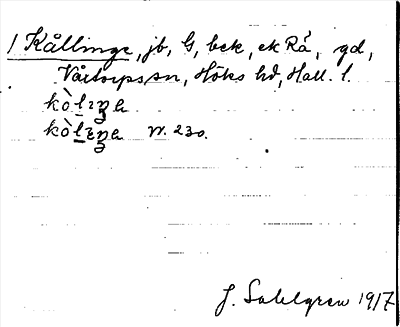 1 Kållinge, jb, G, bek, ek Rå, gd,
Vårtorps sn, Höks hd, Hall. l.
kòlıŋa
kòlıŋa n. 230.
J. Sahlgren 1917